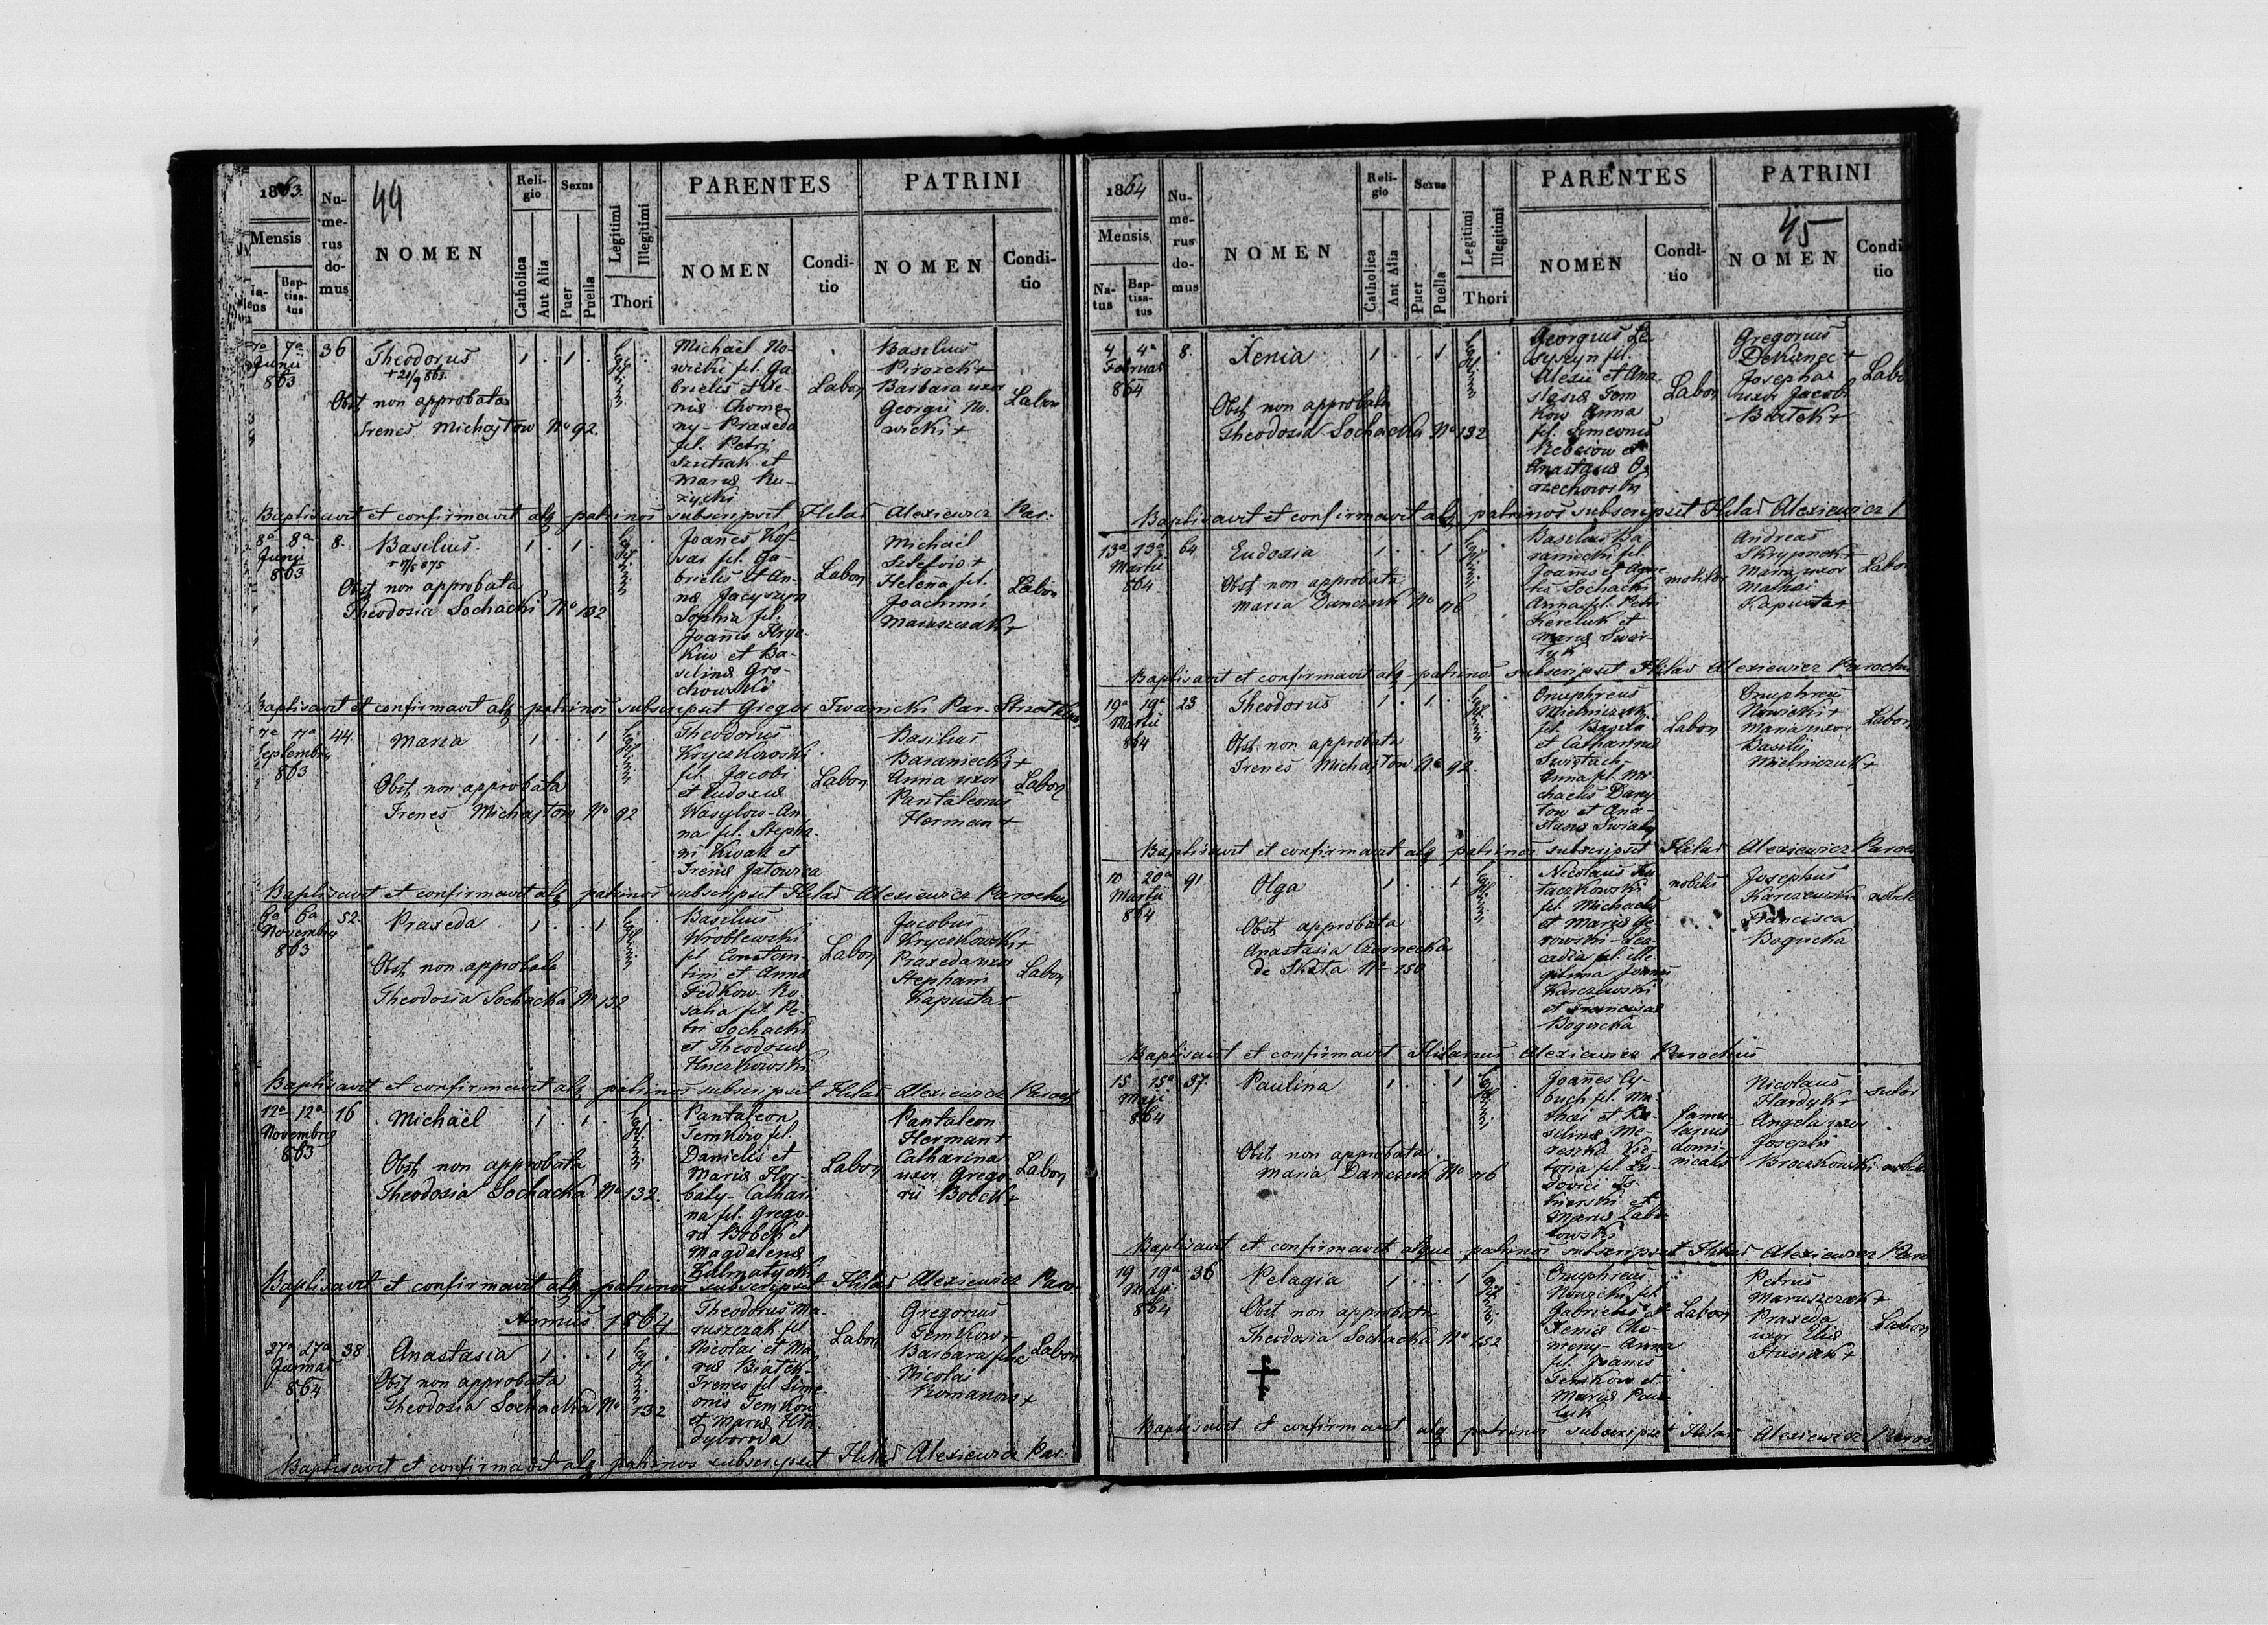 1863.
44
Mensis
Bap-
tisa-
tus
Nu-
me-
rus
do-
mus
NOMEN
Reli-
gio
Catholica
Aut Alia
Sexus
Puer
Puella
Legitimi
Illegitimi
Thori
PARENTES
NOMEN
Condi-
tio
PATRINI
NOMEN
Condi-
tio
7a 7a 36 Theodorus 1 . 1 .
Junii
863
+ 21/9 863.
Obst. non approbata
Irenes Michajłow No 92.
Michaël No-
wicki fil. Ga-
brielis et Xe-
niæ Chome-
ny - Praxeda
fil. Petri
Szutiak et
Mariæ Ru-
życki
Labor
Basilius
Pirożek +
Barbara uxor
Georgii No-
wicki +
Labor
Baptisavit et confirmavit atq patrinos subscripsit Hilar Alexiewicz Par.
8a 8a 8. Basilius 1 . 1 .
Junii
863
Obst non approbata
Theodosia Sochacki No 132
Joanes Kof-
sar fil. Ga-
brielis et An-
næ Jacyszyn
Sophia fil.
Joanis Hryc-
kiw et Ba-
silinæ Gro-
chowski
Labor
Michaël
Helena fil.
Joachimi
Maruszczak +
Labor
Baptisavit et confirmavit atq patrinos subscripsit Gregor Iwanicki Par.
7a 7a 44. Maria 1 . . 1
Septembris
863
Obst. non approbata
Irenes Michajłow No 92
Theodorus
Kryczkowski
fil. Jacobi
et Eudoxiæ
Wasylow - An-
na fil. Stepha-
ni Kwak et
Irenæ Jatowica
Labor
Basilius
Baraniecki +
Anna uxor
Pantaleonis
Herman +
Labor
Baptisavit et confirmavit atq patrinos subscripsit Hilar Alexiewicz Parochus
6a 6a 52. Praxeda 1 . . 1
Novembris
863
Obst. non approbata
Theodosia Sochacka No 132
Basilius
Wroblewski
fil. Constan-
tini et Annæ
Fedkow - Ro-
salia fil. Pe-
tri Sochacki
et Theodosiæ
Huczkowski
Labor
Jacobus
Kryczkowski +
Praxeda uxor
Stephani
Kapusta +
Labor
Baptisavit et confirmavit atq patrinos subscripsit Hilar Alexiewicz Paroch
12a 12a 16 Michaël 1 . 1 .
Novembris
863
Obst. non approbata
Theodosia Sochacka No 132.
Pantaleon
Temkiw fil.
Danielis et
Mariæ Hor-
baty - Cathari-
na fil. Grego-
rii Bobek et
Magdalenæ
Kulmatycki
Labor
Pantaleon
Herman +
Catharina
uxor Grego-
rii Bobek +
Labor
Baptisavit et confirmavit atq patrinos subscripsit Hilar Alexiewicz Paro
Annus 1864
27a 27a 38 Anastasia 1 . . 1
Januar
864
Obst non approbata
Theodosia Sochacka No 132
Theodorus Ma-
ruszczak fil.
Nicolai et Ma-
riæ Białek -
Irenes fil Sime-
onis Temkow
et Mariæ Hła-
dyboroda
Labor
Gregorius
Temkow +
Barbara filia
Nicolai
Romanow +
Labor
Baptisavit et confirmavit atq patrinos subscripsit Hilar Alexiewicz Par.
1864
45
Mensis
Na-
tus
Bap-
tisa-
tus
Nu-
me-
rus
do-
mus
NOMEN
Reli-
gio
Catholica
Aut Alia
Sexus
Puer
Puella
Legitimi
Illegitimi
Thori
PARENTES
NOMEN
Condi-
tio
PATRINI
NOMEN
Condi
tio
4 4a 8. Xenia 1 . . 1
Februar
864
Obst. non approbata
Theodosia Sochacka No 132
Georgius Le-
wyszyn fil.
Alexii et Ana-
stasiæ Tem
kow Anna
fil. Simeonis
Rebciow et
Anastasiæ O-
rzechowski
Labor
Gregorius
Dekunec +
Josepha
uxor Jacobi
Białek +
Labor
Baptisavit et confirmavit atq patrinos subscripsit Hilar Alexiewicz P
13a 13a 64 Eudoxia 1 . . 1
Martii
864.
Obst non approbata
Maria Danczuk No 76
Basilius Ba-
raniecki fil.
Joanis et Agne-
tis Sochacki
Anna fil. Petri
Kereluk et
molitor
Andreas
Skrypnek +
Maria uxor
Mathæi
Kapusta +
Labor
Baptisavit et confirmavit atq patrinos subscripsit Hilar Alexiewicz Parochu
19a 19a 23 Theodorus 1 . 1 .
Martii
864
Obst. non approbata
Irenes Michajłow No 92.
Onuphreus
Mielniczuk
fil. Basilii
et Catharinæ
Anna fil. Mi-
chaelis Dany-
low et Ana-
stasiæ Swiaty
Labor
Onuphreus
Nowicki +
Maria uxor
Basilii
Mielniczuk +
Labor
Baptisavit et confirmavit atq patrinos subscripsit Hilar Alexiewicz Paroc
10 20a 91 Olga 1 . . 1
Martii
864
Obst approbata
Anastasia Czarnecka
de Skata No 150
Nicolaus Hu-
taczkowski
fil. Michaelis
et Mariæ Ge-
rowski - Leo-
cadia fil.
Joannis
Karczewski
et Franciscæ
Bogucka
nobilis
Josephus
Karczewski
Francisca
Bogucka
nobilis
Baptisavit et confirmavit Hilarius Alexiewicz Parochus
15 15a 57. Paulina 1 . . 1
Maji
864
Obst. non approbata
Maria Danczuk No 76
Joanes Cy-
buch fil. Ma-
thæi et Ba-
silinæ Me-
reszka Vic-
toria fil. Lu-
dovici
et
Mariæ
famu-
lanus
domi-
nicalis
Nicolaus
Hardyk +
Angela uxor
Josephi
Broczkowski
sutor
Baptisavit et confirmavit atque patrinos subscripsit Hilar Alexiewicz Paro
19 19a 36 Pelagia 1 . . 1
Maji
864
Obst non approbata
Theodosia Sochacka No 132
Onuphreus
Nowicki fil
Gabrielis et
Xeniæ Cho-
meny - Anna
fil. Joanis
Temkow et
Mariæ Paw-
luk
Labor
Petrus
Maruszczak +
Praxeda
uxor Eliæ
Stusiak +
Labor
Baptisavit et confirmavit atq patrinos subscripsit Hilar Alexiewicz Paroc